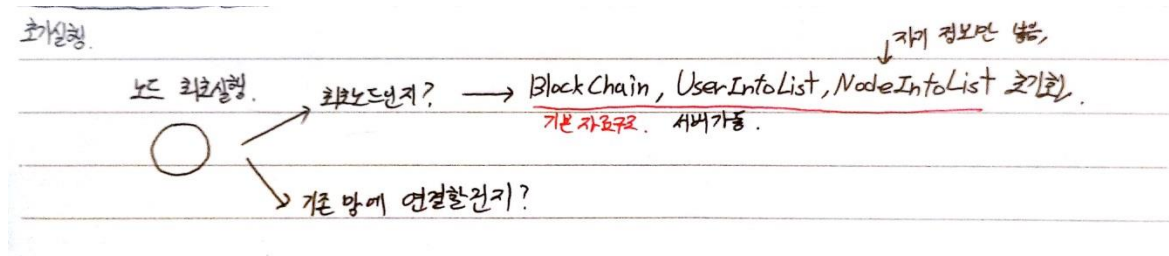 초기실행.
자기 정보만 넣음,
노드 최초실행.
최초노드인지? → BlockChain, UserInfoList, NodeInfoList 초기화.
기본 자료구조. 서버가동.
기존 망에 연결할건지?